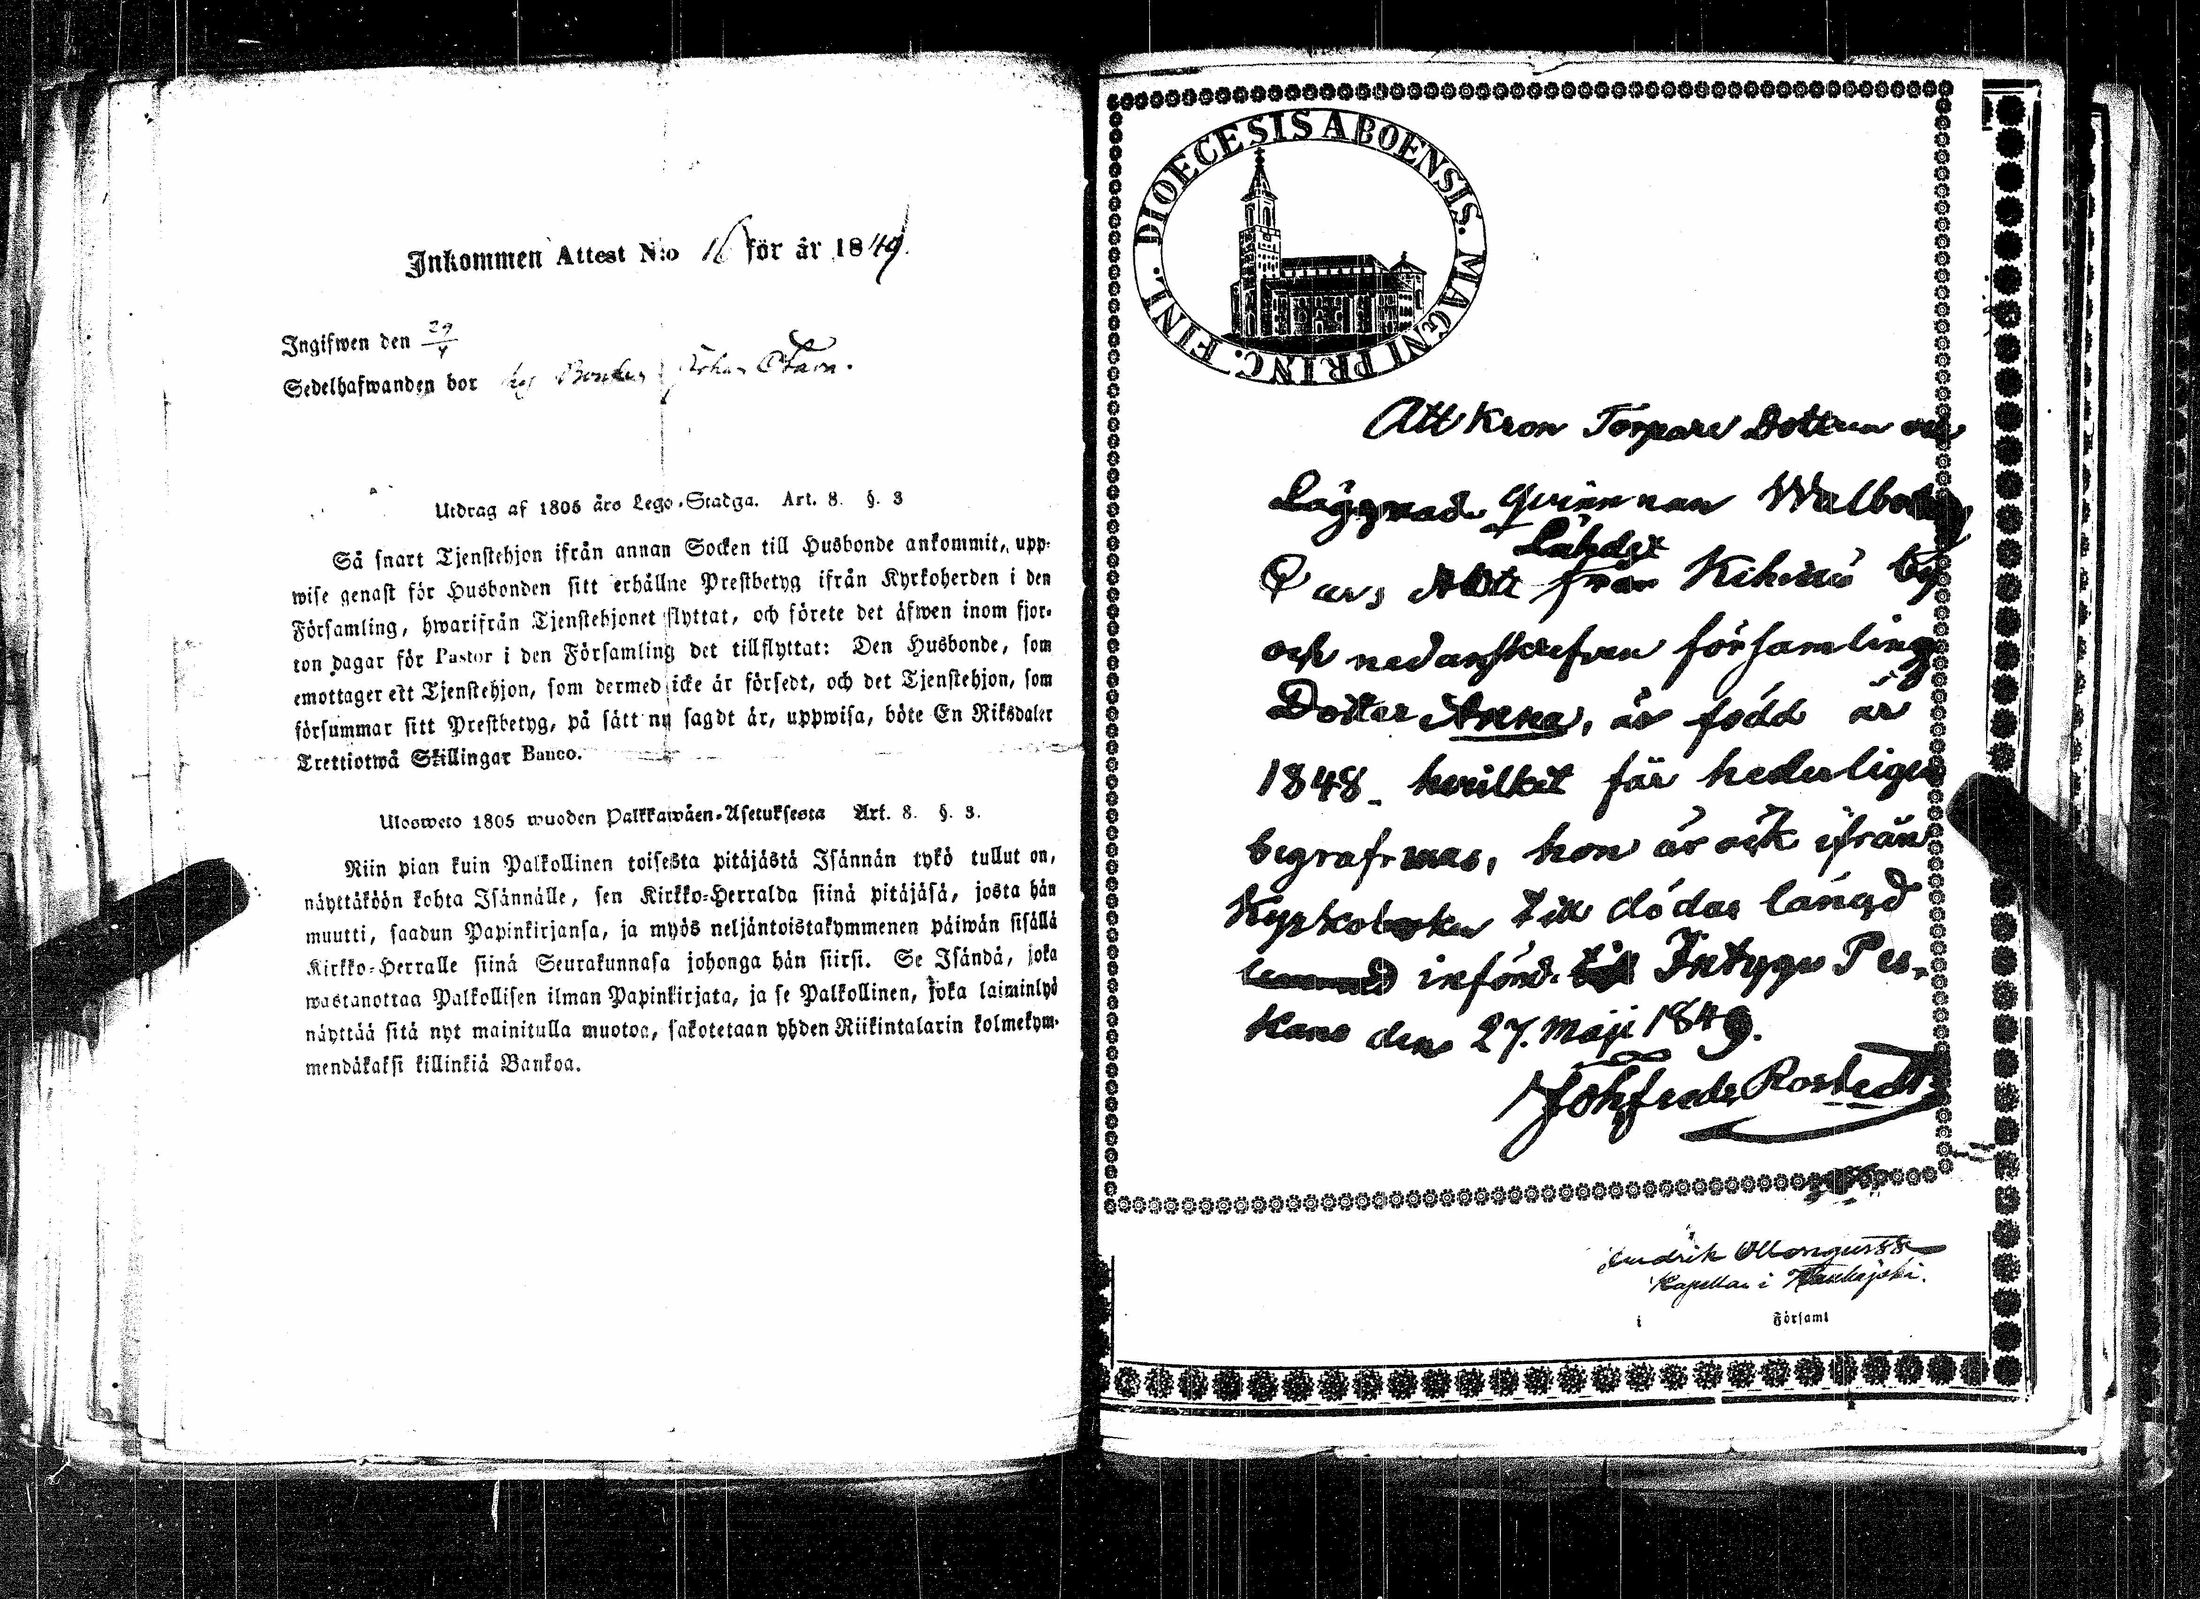 Inkommen Attest N:o 16 för år 1849.
Ingifwen den 29/4
Sedelhafwanden bor hos Bonden Johan
Utdrag af 1805 års Lego-Stadga. Art. 8. §. 3
Så snart Tjenstehjon ifrån annan Socken till Husbonde ankommit, upp-
wise genast för Husbonden sitt erhållne Prestbetyg ifrån Kyrkoherden i den
Församling, hwarifrån Tjenstehjonet flyttat, och förete det äfwen inom fjor-
ton dagar för Pastor i den Församling det tillflyttat: Den Husbonde, som
emottager ett Tjenstehjon, som dermed icke är försedt, och det Tjenstehjon, som
försummar sitt Prestbetyg, på sätt nu sagdt är, uppwisa, böte En Riksdaler
Trettiotwå Skillingar Banco.
Ulosweto 1805 wuoden Palkkawäen-Asetuksesta Art. 8. §. 3.
Niin pian kuin Palkollinen toisesta pitäjästä Isännän tykö tullut on,
näyttäköön kohta Isännälle, sen Kirkko-Herralda siinä pitäjäsä, josta hän
muutti, saadun Papinkirjansa, ja myös neljäntoistakymmenen päiwän sisällä
Kirkko-Herralle siinä Seurakunnasa johonga hän siirsi. Se Isändä, joka
wastanottaa Palkollisen ilman Papinkirjata, ja se Palkollinen, joka laiminlyö
näyttää sitä nyt mainitulla muotoa, sakotetaan yhden Riikintalarin kolmekym-
mendäkaksi killinkiä Bankoa.
DIOECESIS ABOENSIS. MAGNI PRINC. FINL.
Att Kron Torpare Dottren och
Lägrade Qvinnan Walborg
Lähdet
Lars Dott från Kihniö by
och nedanskrefven församling
Dotter Anna, är född år
1848 hvilket får hederligen
begrafvas, hon är ock ifrån
Kyrkoboken till dödas längd
införd. Intygar Per-
kano den 27. Maji 1849.
Joh fredr Rostedt
Kapellan i
i Församl